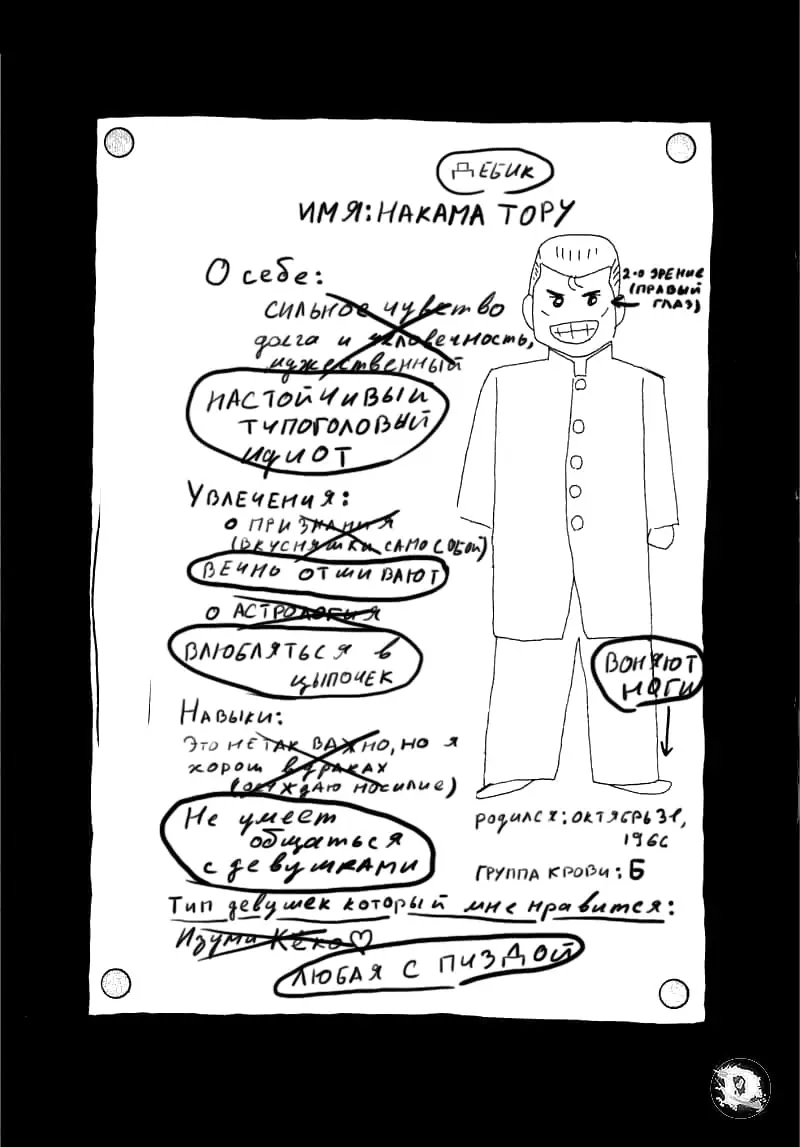 ДЕБИК
ИМЯ: НАКАМА ТОРУ
О себе:
сильное чувство
долга и человечность,
мужественный
НАСТОЙЧИВЫЙ
ТУПОГОЛОВЫЙ
ИДИОТ
2-0 ЗРЕНИЕ
(ПРАВЫЙ
ГЛАЗ)
УВЛЕЧЕНИЯ:
О ПРИЗНАНИЯ
(ВКУСНЯШКИ САМО СОБОЙ)
ВЕЧНО ОТШИВАЮТ
О АСТРОЛОГИЯ
ВЛЮБЛЯТЬСЯ В
ЦЫПОЧЕК
ВОНЯЮТ
НОГИ
НАВЫКИ:
ЭТО НЕ ТАК ВАЖНО, НО Я
ХОРОШ В ДРАКАХ
(ОСУЖДАЮ НОСИЛИЕ)
Не умеет
общаться
с девушками
РОДИЛСЯ: ОКТЯБРЬ 31,
1966
ГРУППА КРОВИ: Б
Тип девушек который мне нравится:
Изуми Кёко
ЛЮБАЯ С ПИЗДОЙ